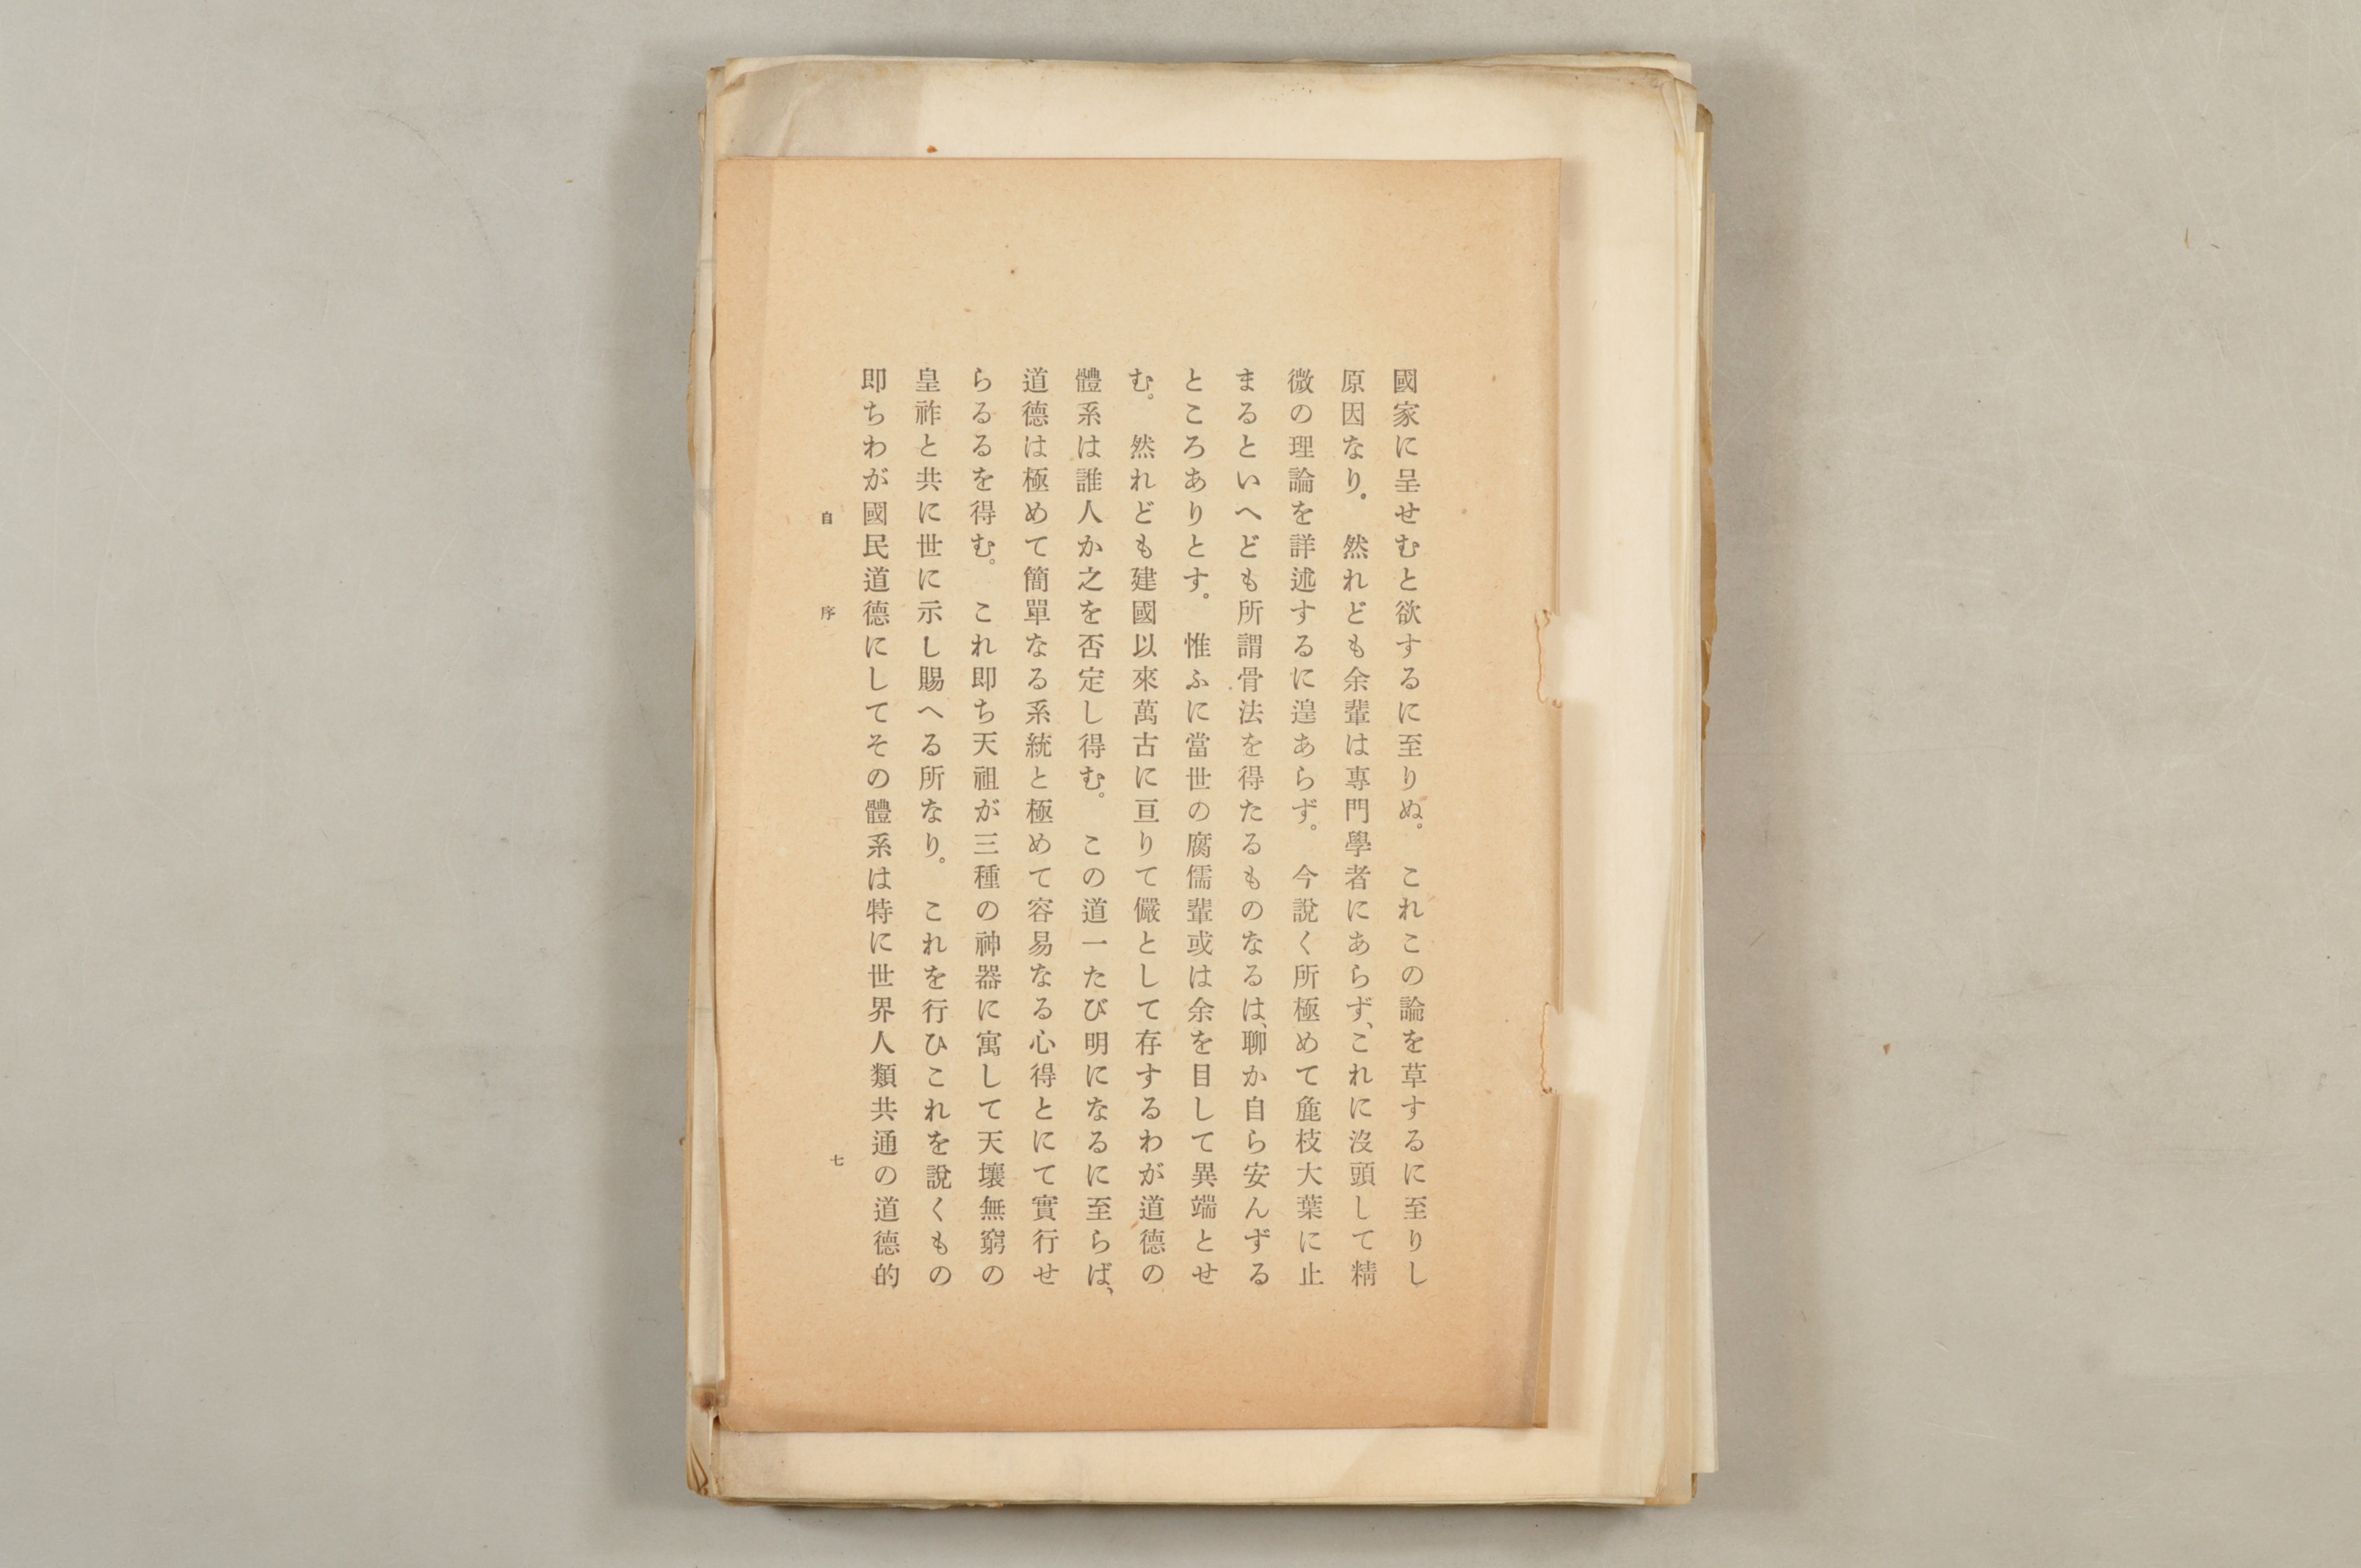 國家に呈せむと欲するに至りぬ。これこの論を草するに至りし
原因なり。然れども余輩は專門學者にあらず、これに沒頭して精
微の理論を詳述するに遑あらず。今說く所極めて麁枝大葉に止
まるといへども所謂骨法を得たるものなるは、聊か自ら安んずる
ところありとす。惟ふに當世の腐儒輩或は余を目して異端とせ
む。然れども建國以來萬古に亘りて儼として存するわが道德の
體系は誰人か之を否定し得む。この道一たび明になるに至らば、
道德は極めて簡單なる系統と極めて容易なる心得とにて實行せ
らるるを得む。これ即ち天祖が三種の神器に寓して天壤無窮の
皇祚と共に世に示し賜へる所なり。これを行ひこれを說くもの
即ちわが國民道德にしてその體系は特に世界人類共通の道德的
自序
七